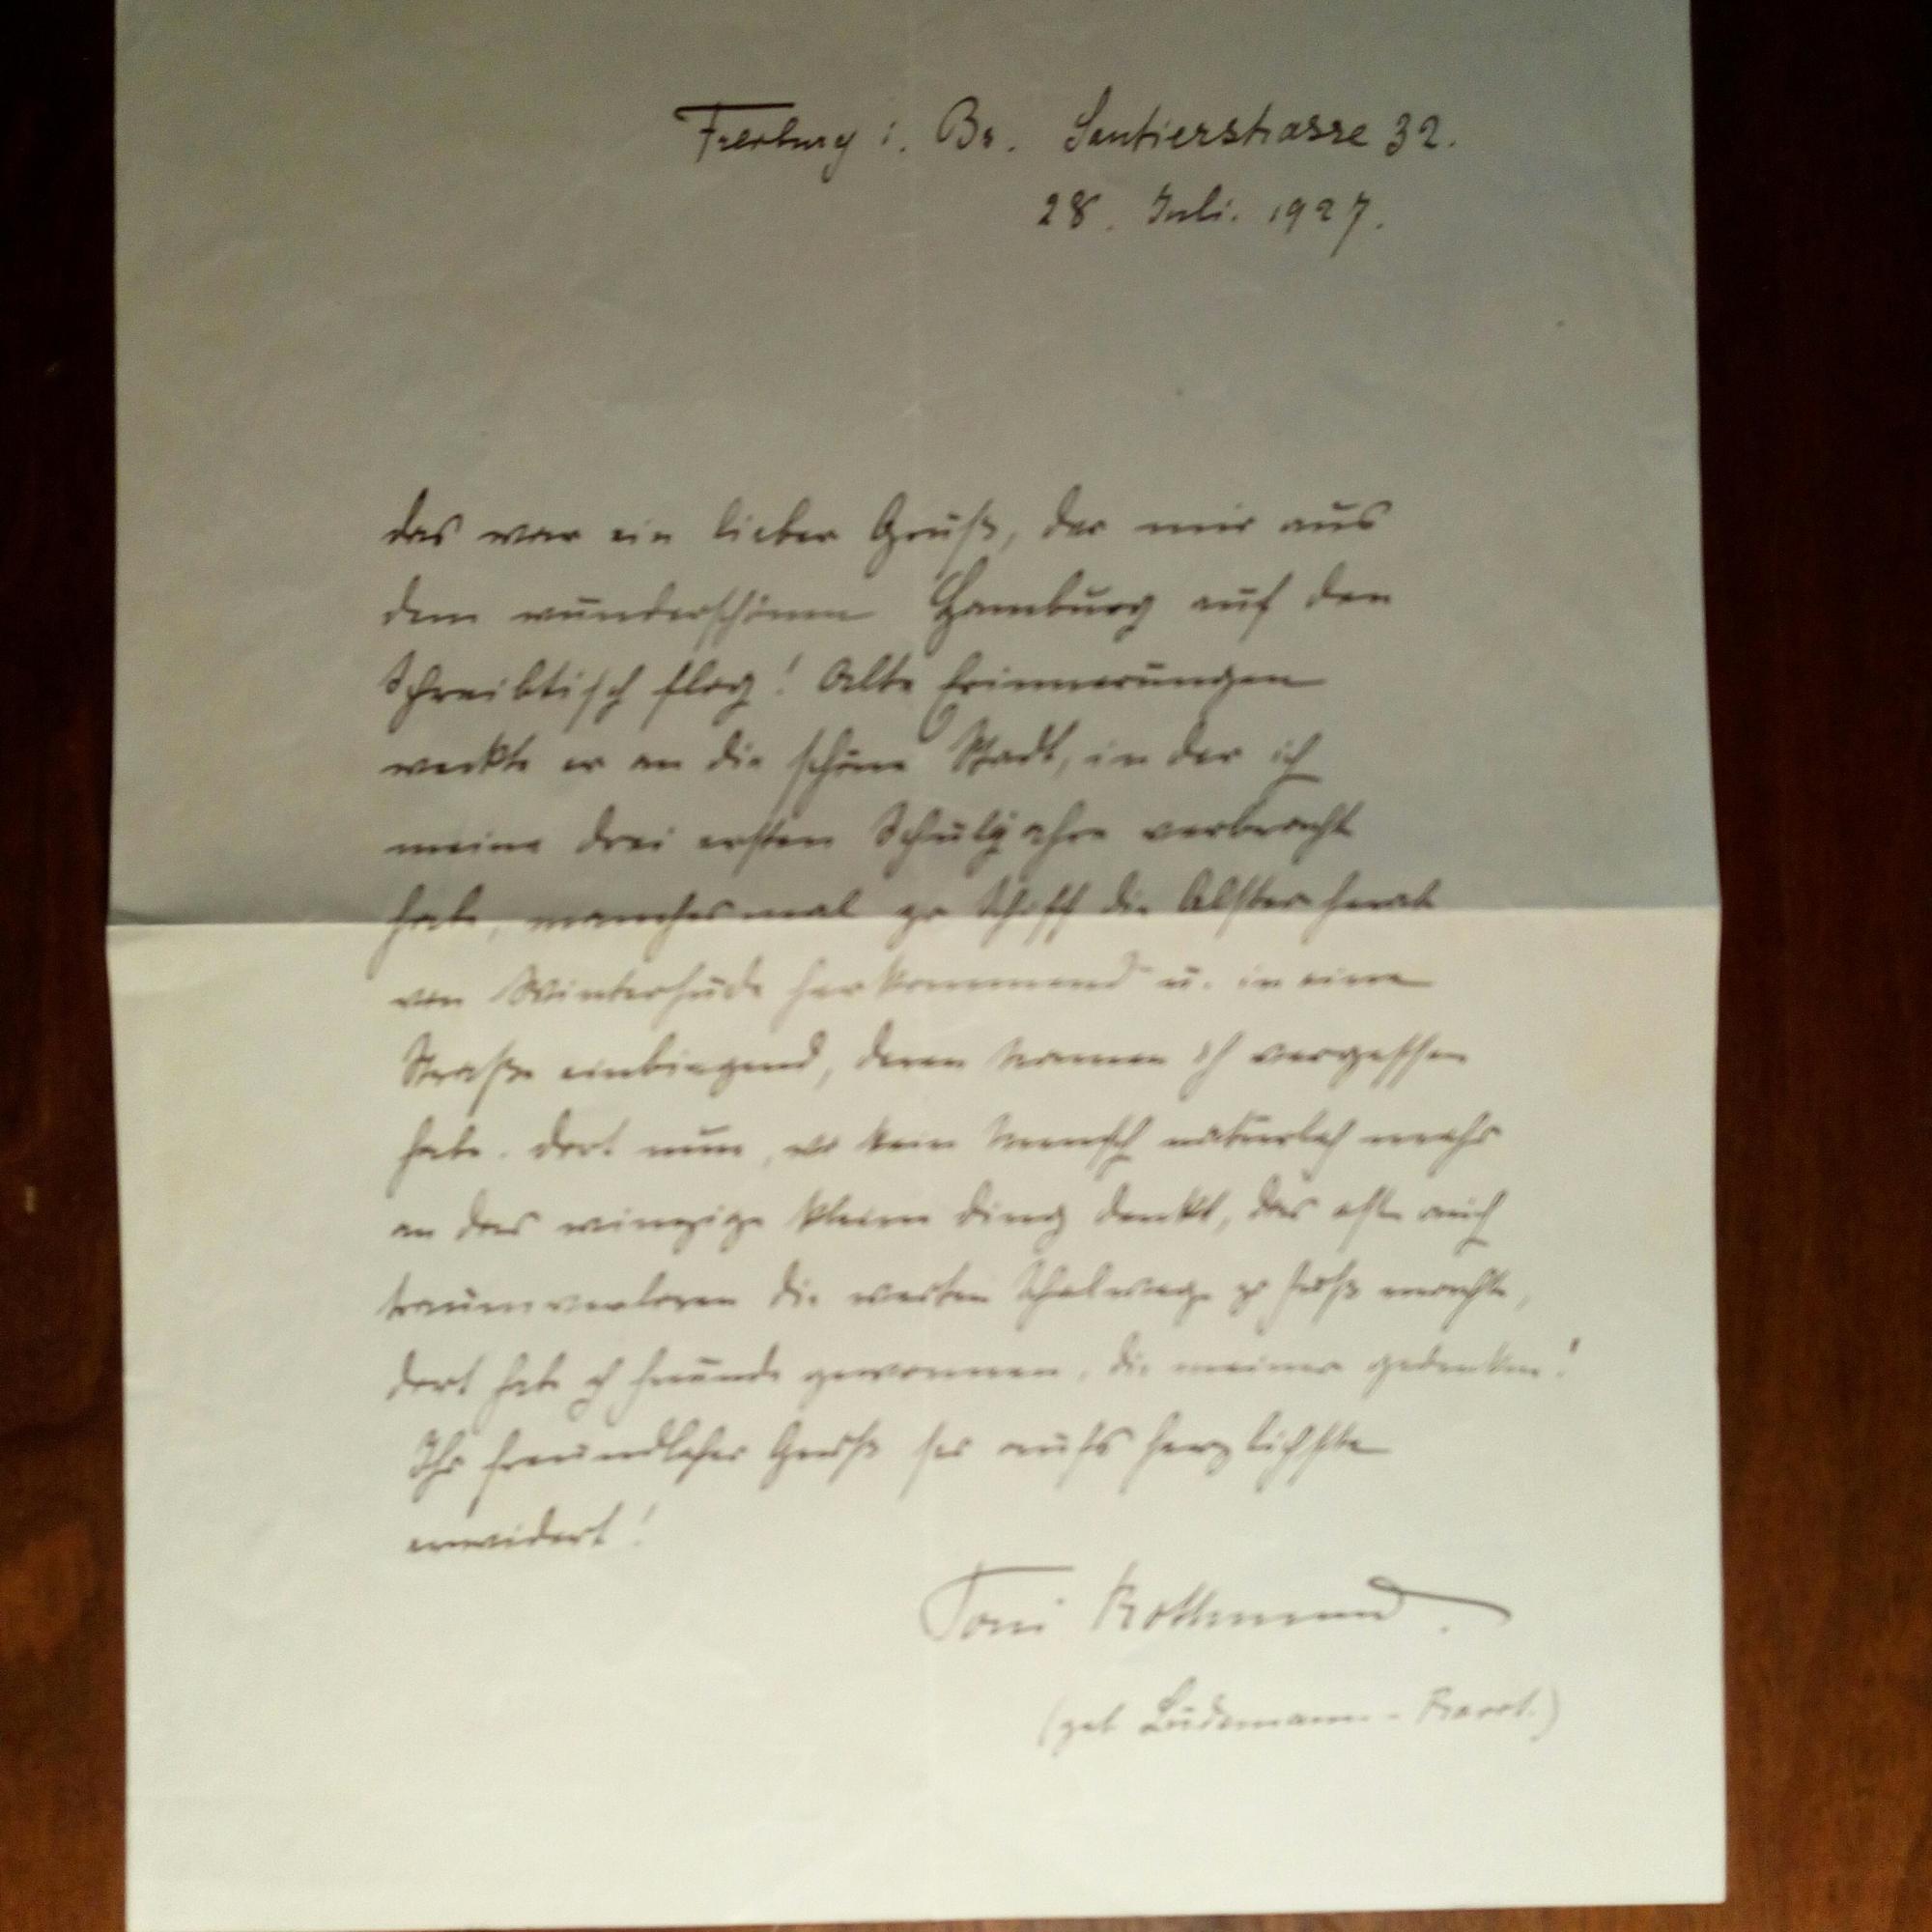 Freiburg i. Br. Sautierstrasse 32.
28. Juli. 1927.
das war ein lieber Gruß, der mir aus
dem wunderschönen Hamburg auf den
Schreibtisch flog! Alte Erinnerungen
weckte er an die schöne Stadt, in der ich
meine drei ersten Schuljahre verbracht
habe, manches mal zu Schiff die Alster herab
von Winterhude herkommend u. in eine
Straße einbiegend, deren Namen ich vergessen
habe. Dort nun, wo kein Mensch natürlich mehr
an das winzige kleine Ding denkt, das oft auch
traumverloren die weiten Schulwege zu Fuß machte,
dort hab ich Freunde gewonnen, die meiner gedenken!
Ihr freundlicher Gruß sei aufs herzlichste
erwidert!
Toni Rothmund.
(geb Lüdemann-